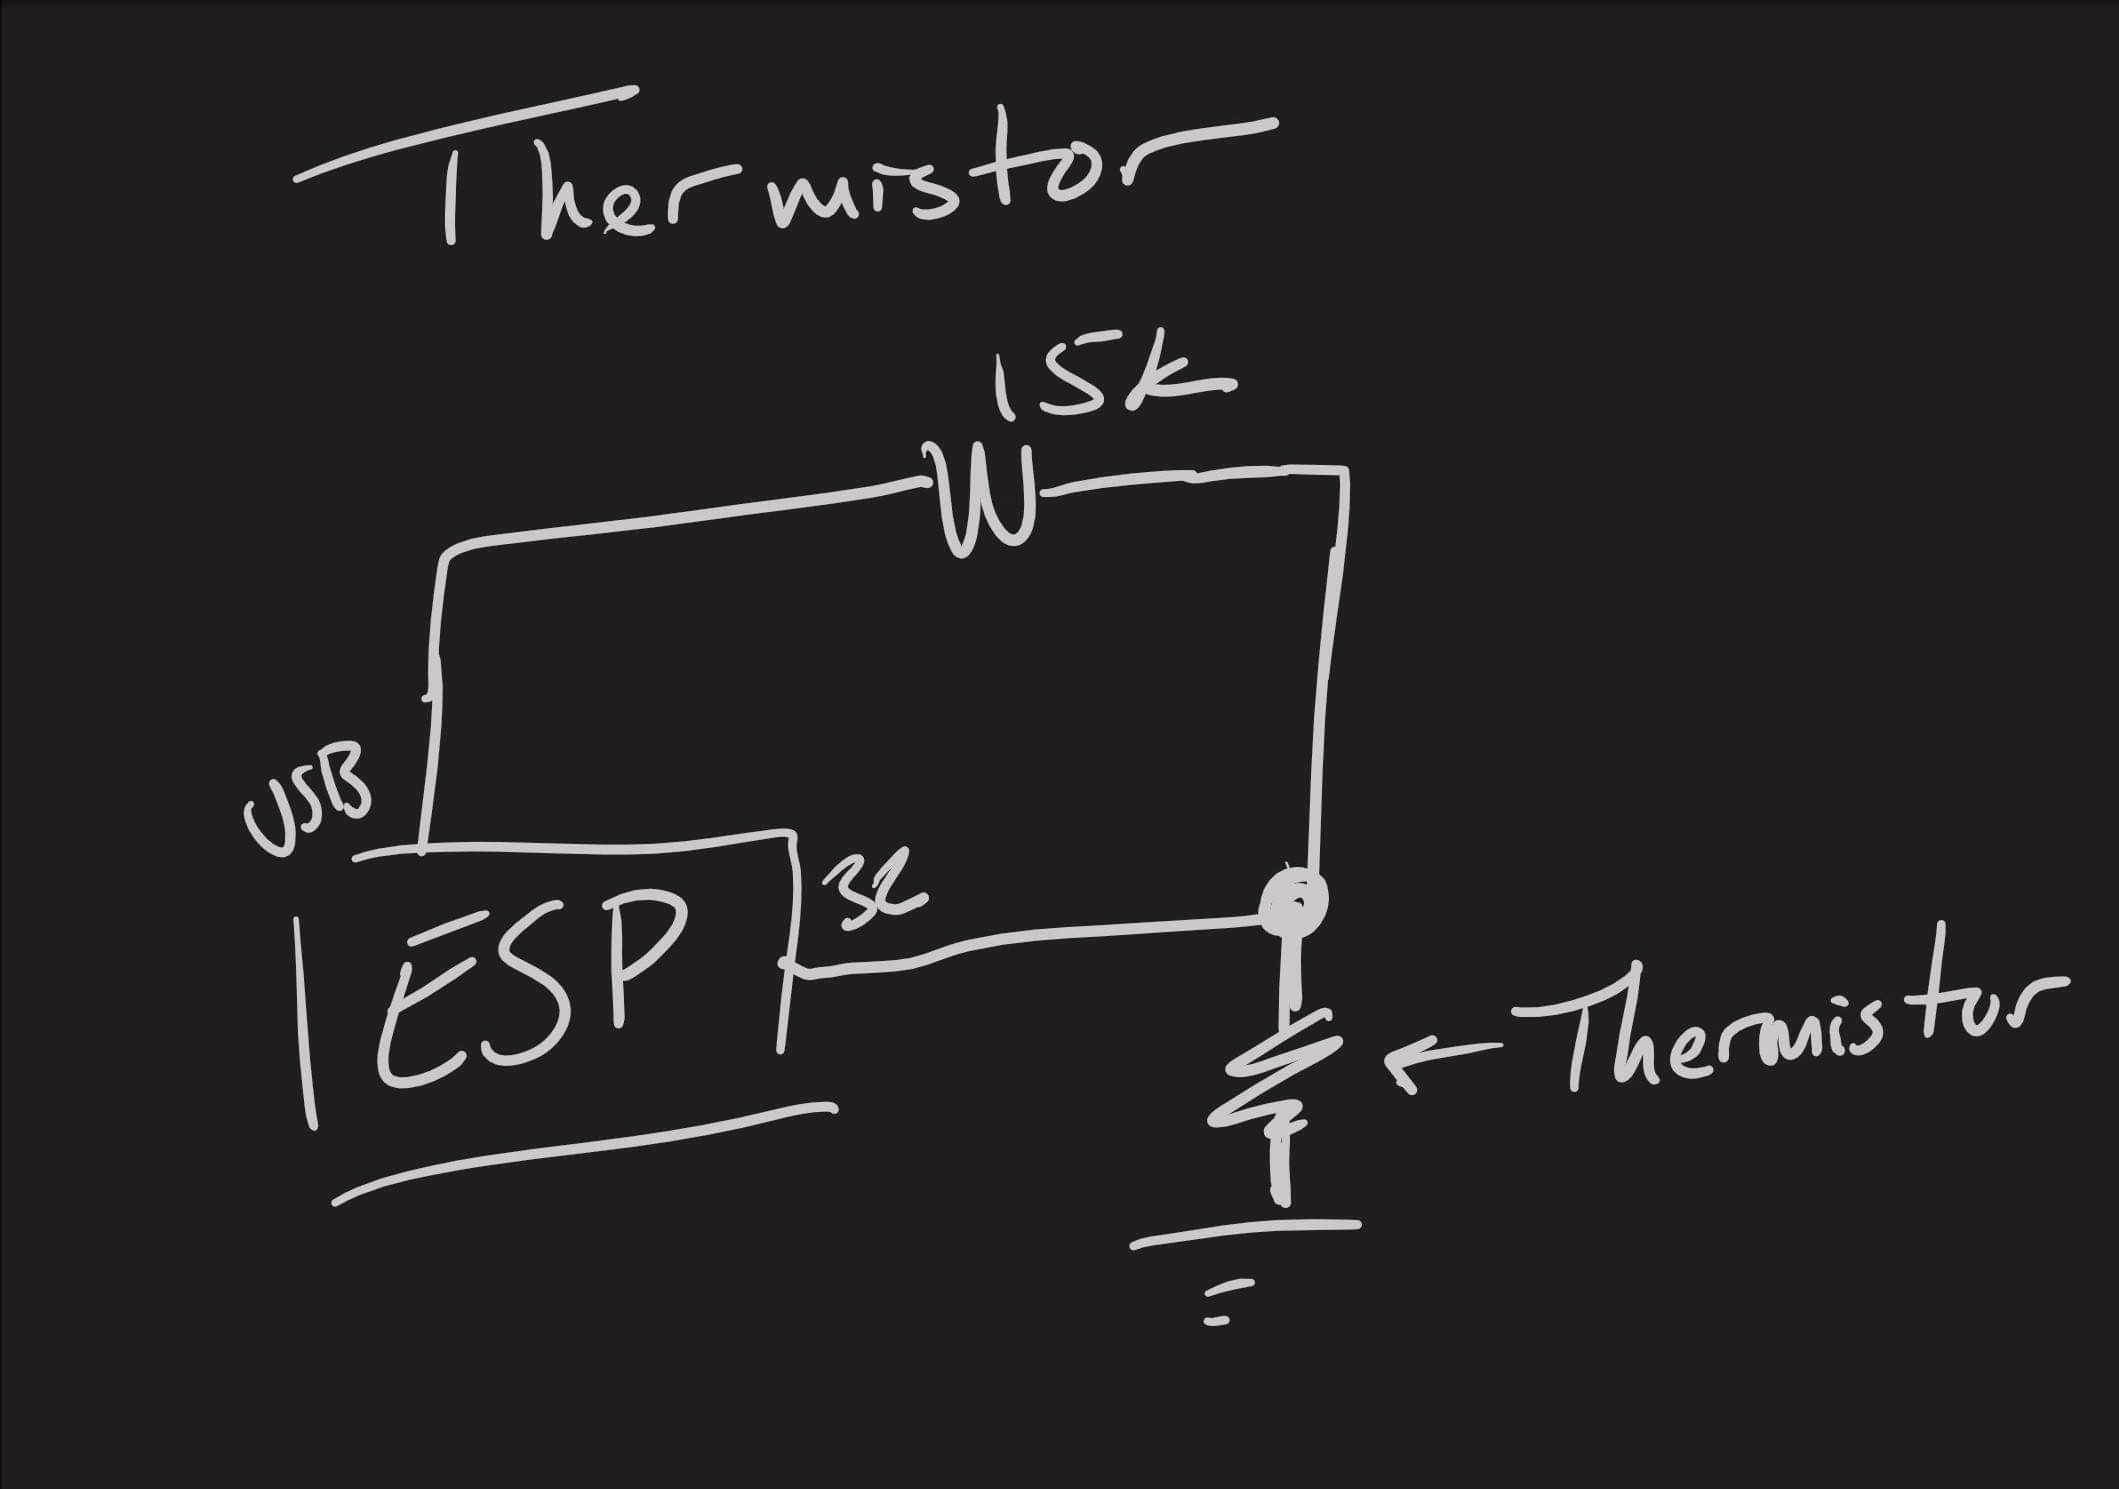 Thermistor
15k
USB
32
ESP
Thermistor